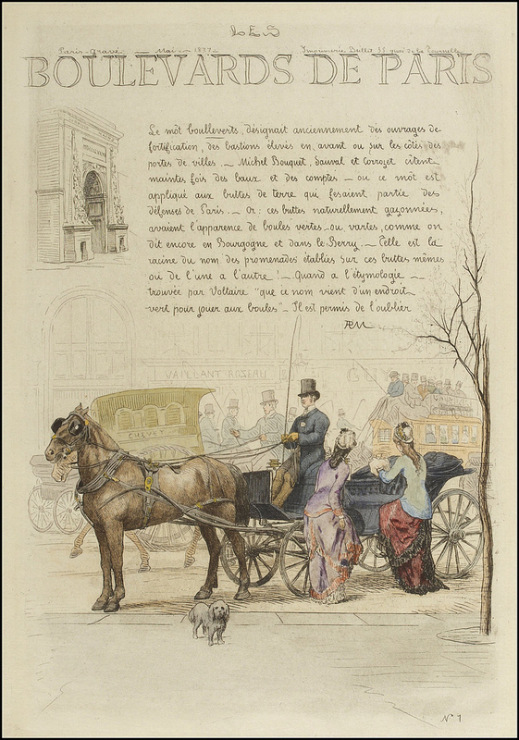 LES
Paris-gravé - Mai - 1877 - Imprimerie 35 de la Tournelle
BOULEVARDS DE PARIS
Le mot boulleverts, désignait anciennement des ouvrages de
fortification, des bastions élevés en avant ou sur les côtés des
portes de villes. - Michel Bouquet, Sauval et Corrozet citent
maintes fois des baux et des comptes - ou ce mot est
appliqué aux buttes de terre qui fesaient partie des
défenses de Paris. - Or: ces buttes naturellement gazonnées,
avaient l'apparence de boules vertes - ou vartes, comme on
dit encore en Bourgogne et dans le Berry. - Telle est la
racine du nom des promenades établies sur ces buttes mêmes
ou de l'une a l'autre! - Quand a l'étymologie -
trouvée par Voltaire "que ce nom vient d'un endroit
vert pour jouer aux boules" - Il est permis de l'oublier
ÆM
VAILLANT ROZEAU
CHEVET
N° 1